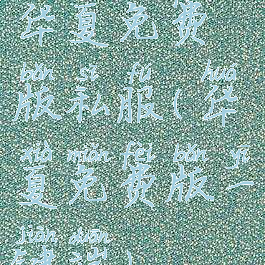 华夏免费
bǎn sī fú huá
版私服(华
xià miǎn fèi bǎn yī
夏免费版一
jiàn duān